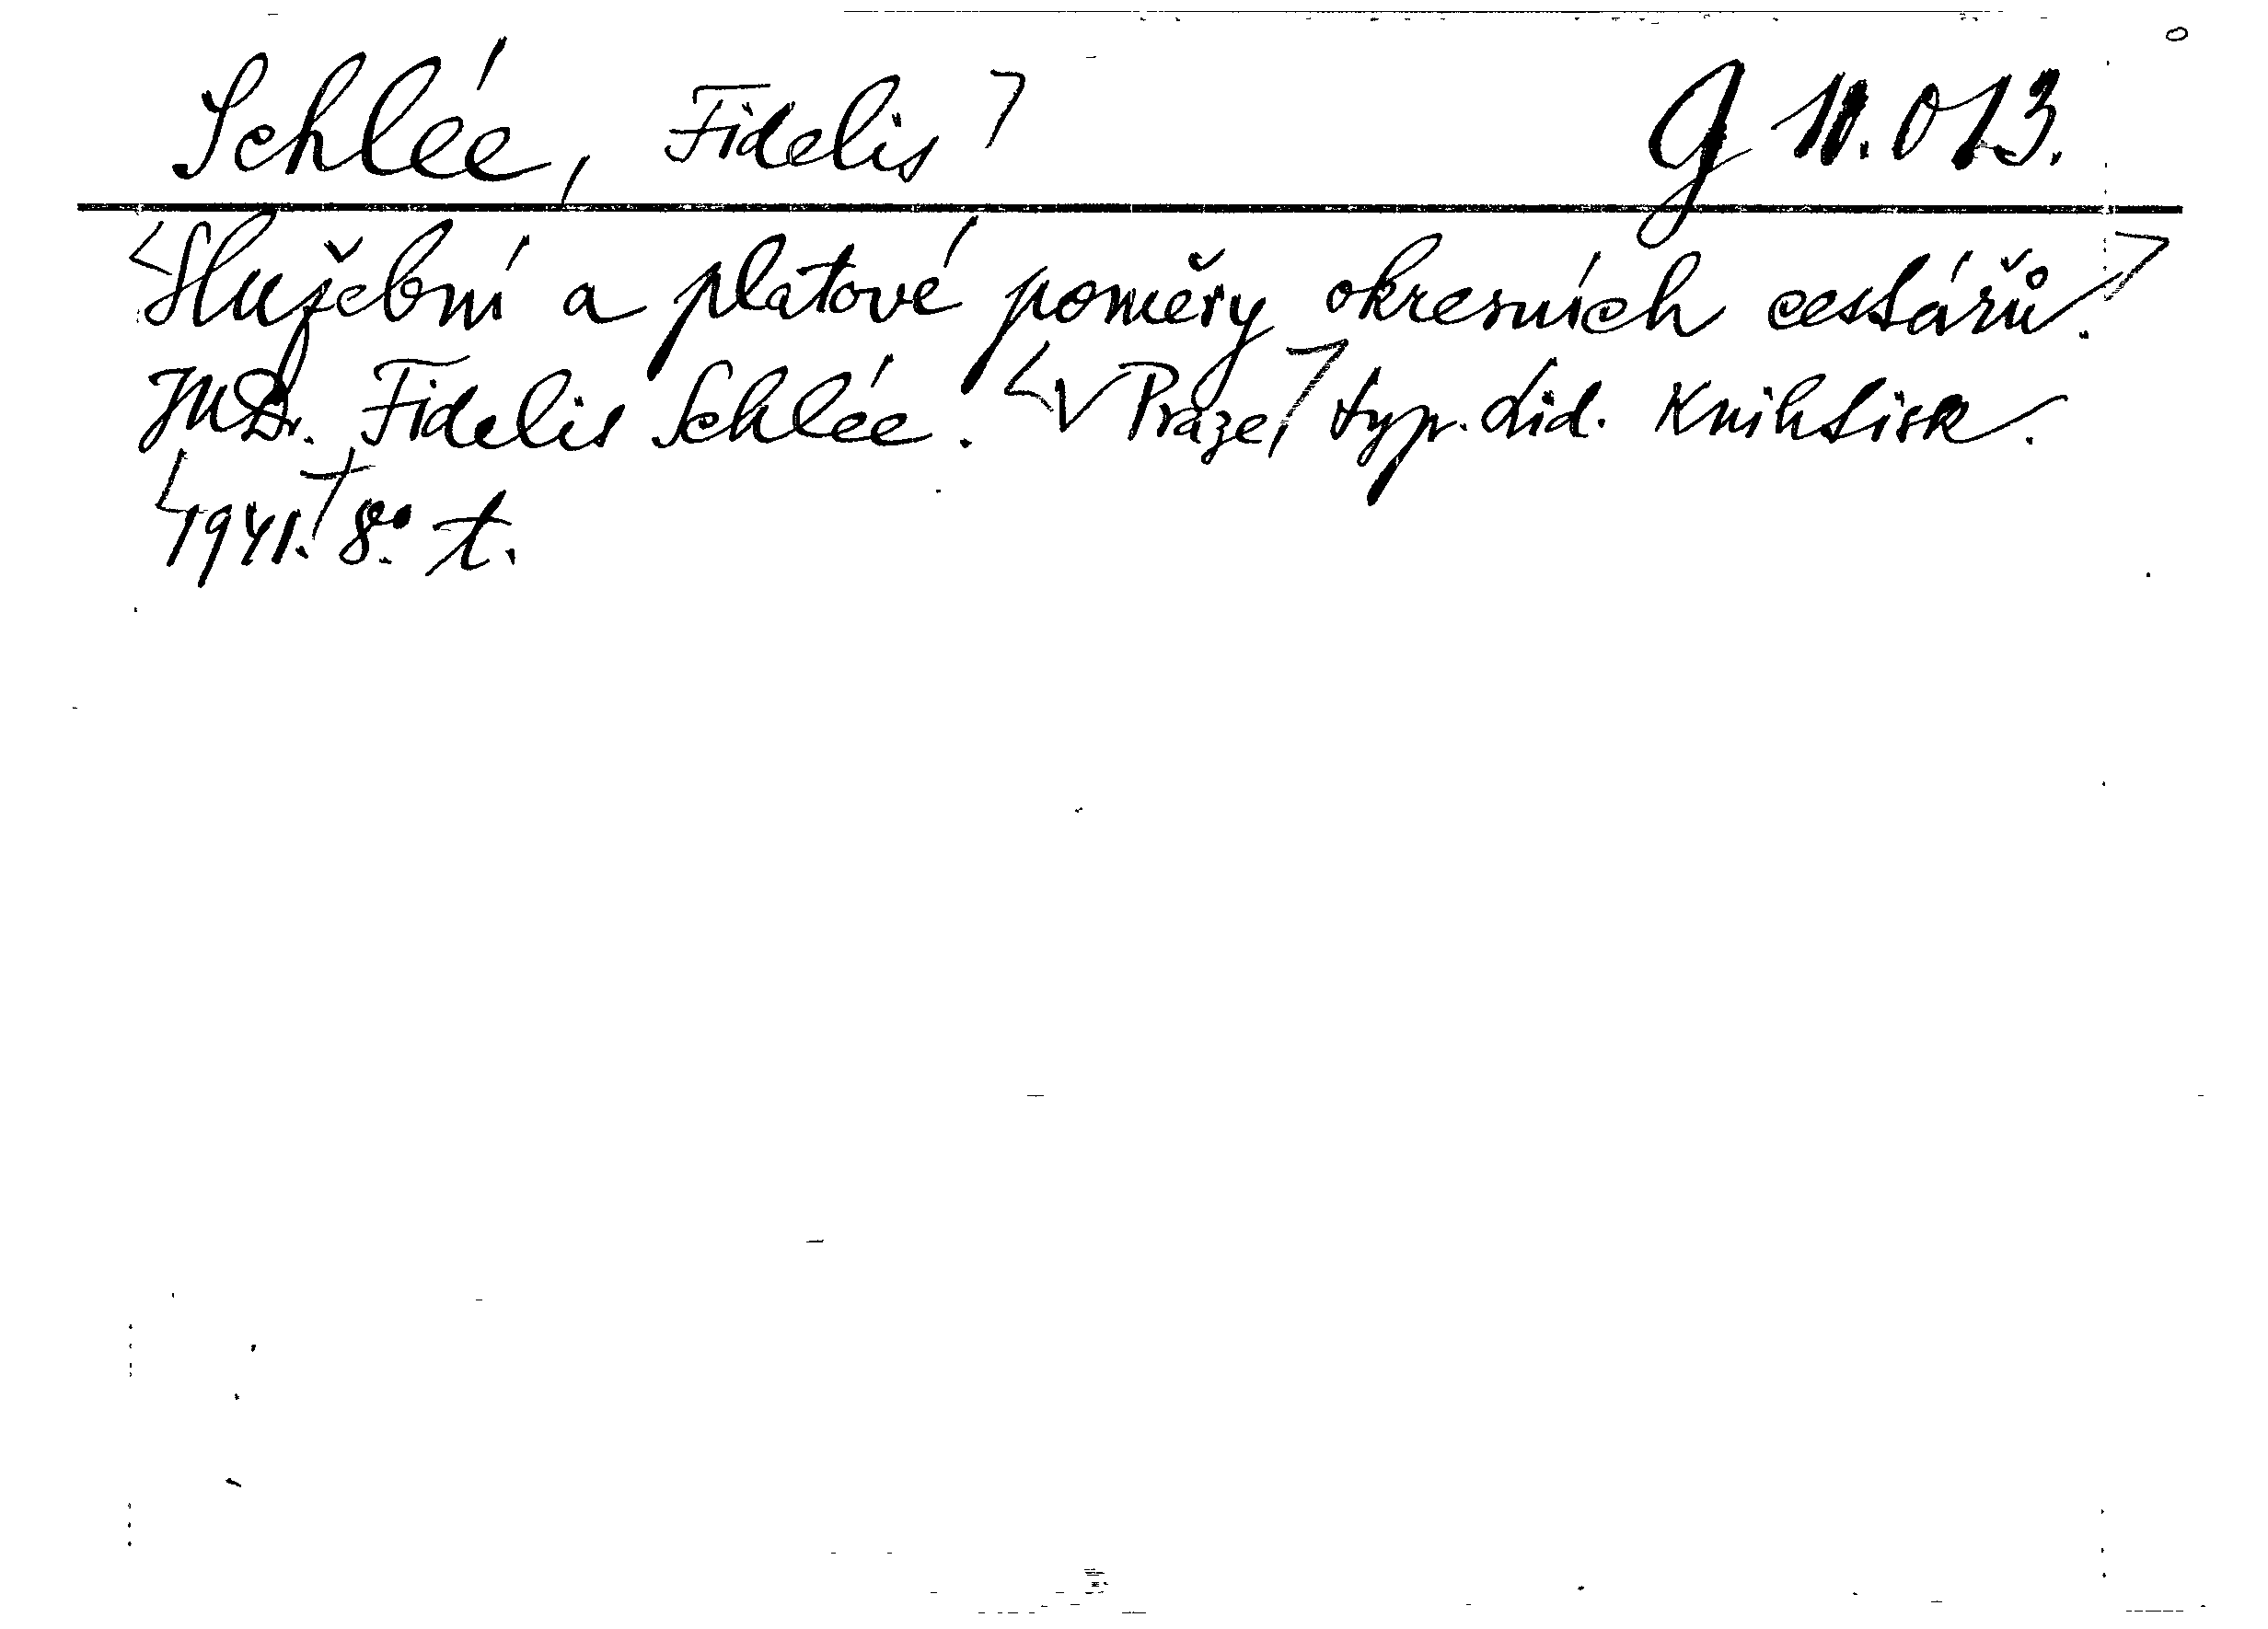 Schlée, Fidelis G 11.013.
Služební a platové poměry okresních cestářů.
JUDr. Fidelis Schlée. V Praze, typ. Lid. Knihtisk.
1941. 8° t.